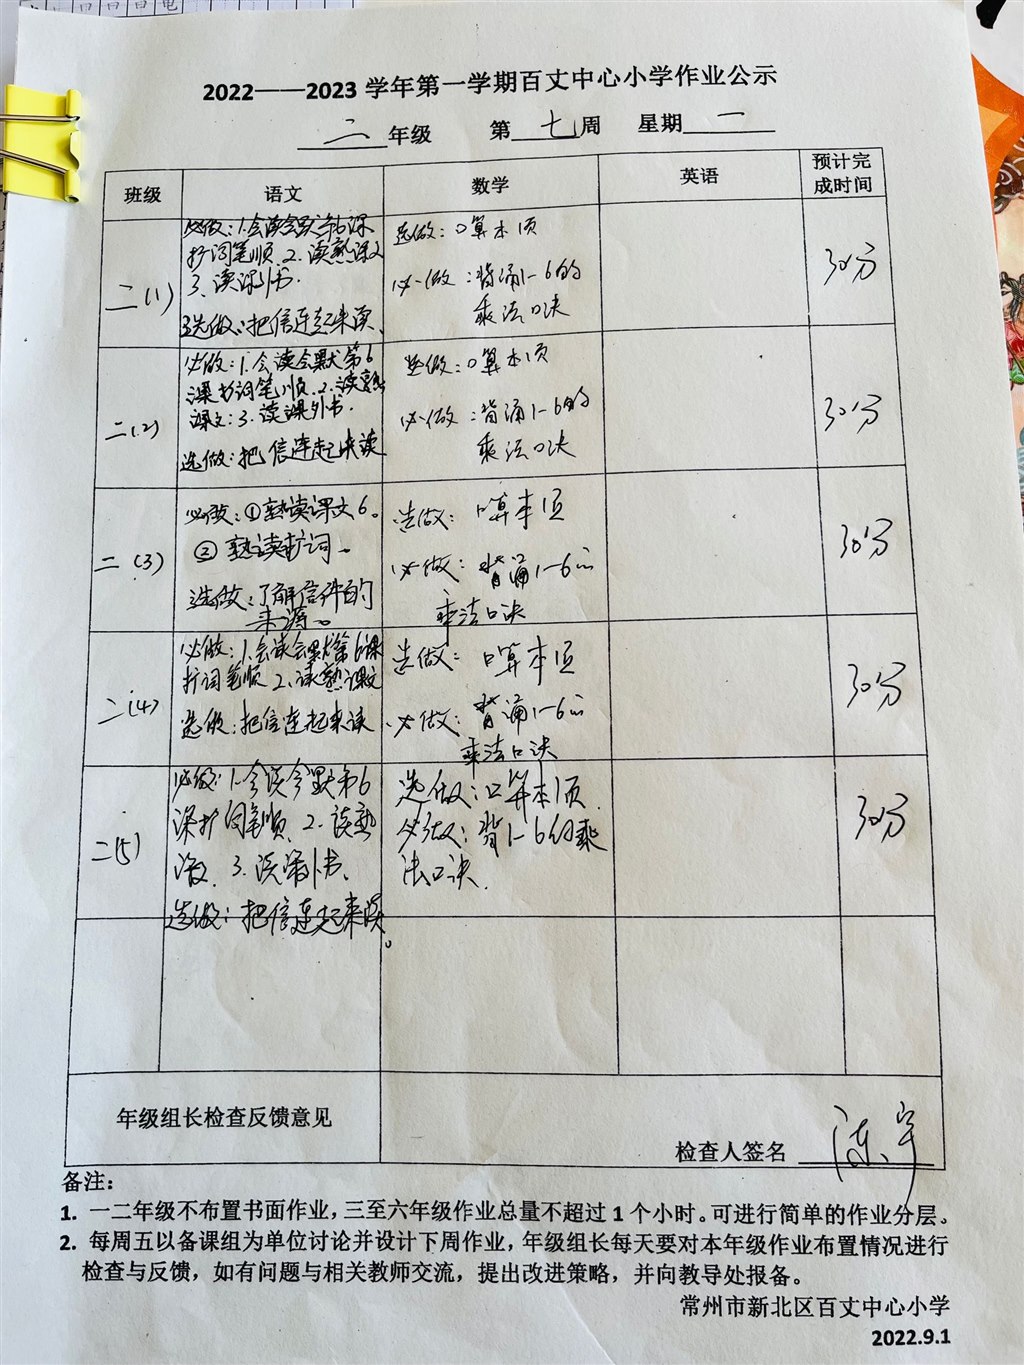 2022——2023 学年第一学期百丈中心小学作业公示
二年级 第七周 星期一
班级 语文 数学 英语 预计完成时间
二(1)
必做：1.会读会默第6课
扩词笔顺 2.读熟课文
3、读课外书.
选做：把信连起来读.
选做：口算本1页
必做：背诵1-6的
乘法口诀
30分
二(2)
必做：1.会读会默第6
课扩词笔顺.2.读熟
课文：3.读课外书.
选做：把信连起来读
选做：口算本1页
必做：背诵1-6的
乘法口诀
30分
二(3)
必做：①熟读课文6。
②熟读扩词。
选做：了解信件的
来源。
选做：口算本1页
必做：背诵1-6的
乘法口诀
30分
二(4)
必做：1.会读会默第6课
扩词笔顺 2.读熟课文
选做：把信连起来读
选做：口算本1页
必做：背诵1-6的
乘法口诀
30分
二(5)
必做：1.会读会默第6
课扩词笔顺、2.读熟
课文、3.读课外书、
选做：把信连起来读。
选做：口算本1页.
必做：背1-6的乘
法口诀.
30分
年级组长检查反馈意见
检查人签名 陈宇
备注：
1. 一二年级不布置书面作业，三至六年级作业总量不超过 1 个小时。可进行简单的作业分层。
2. 每周五以备课组为单位讨论并设计下周作业，年级组长每天要对本年级作业布置情况进行
检查与反馈，如有问题与相关教师交流，提出改进策略，并向教导处报备。
常州市新北区百丈中心小学
2022.9.1